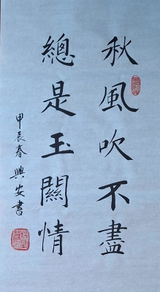 秋風吹不盡
總是玉關情
甲辰春 興安書